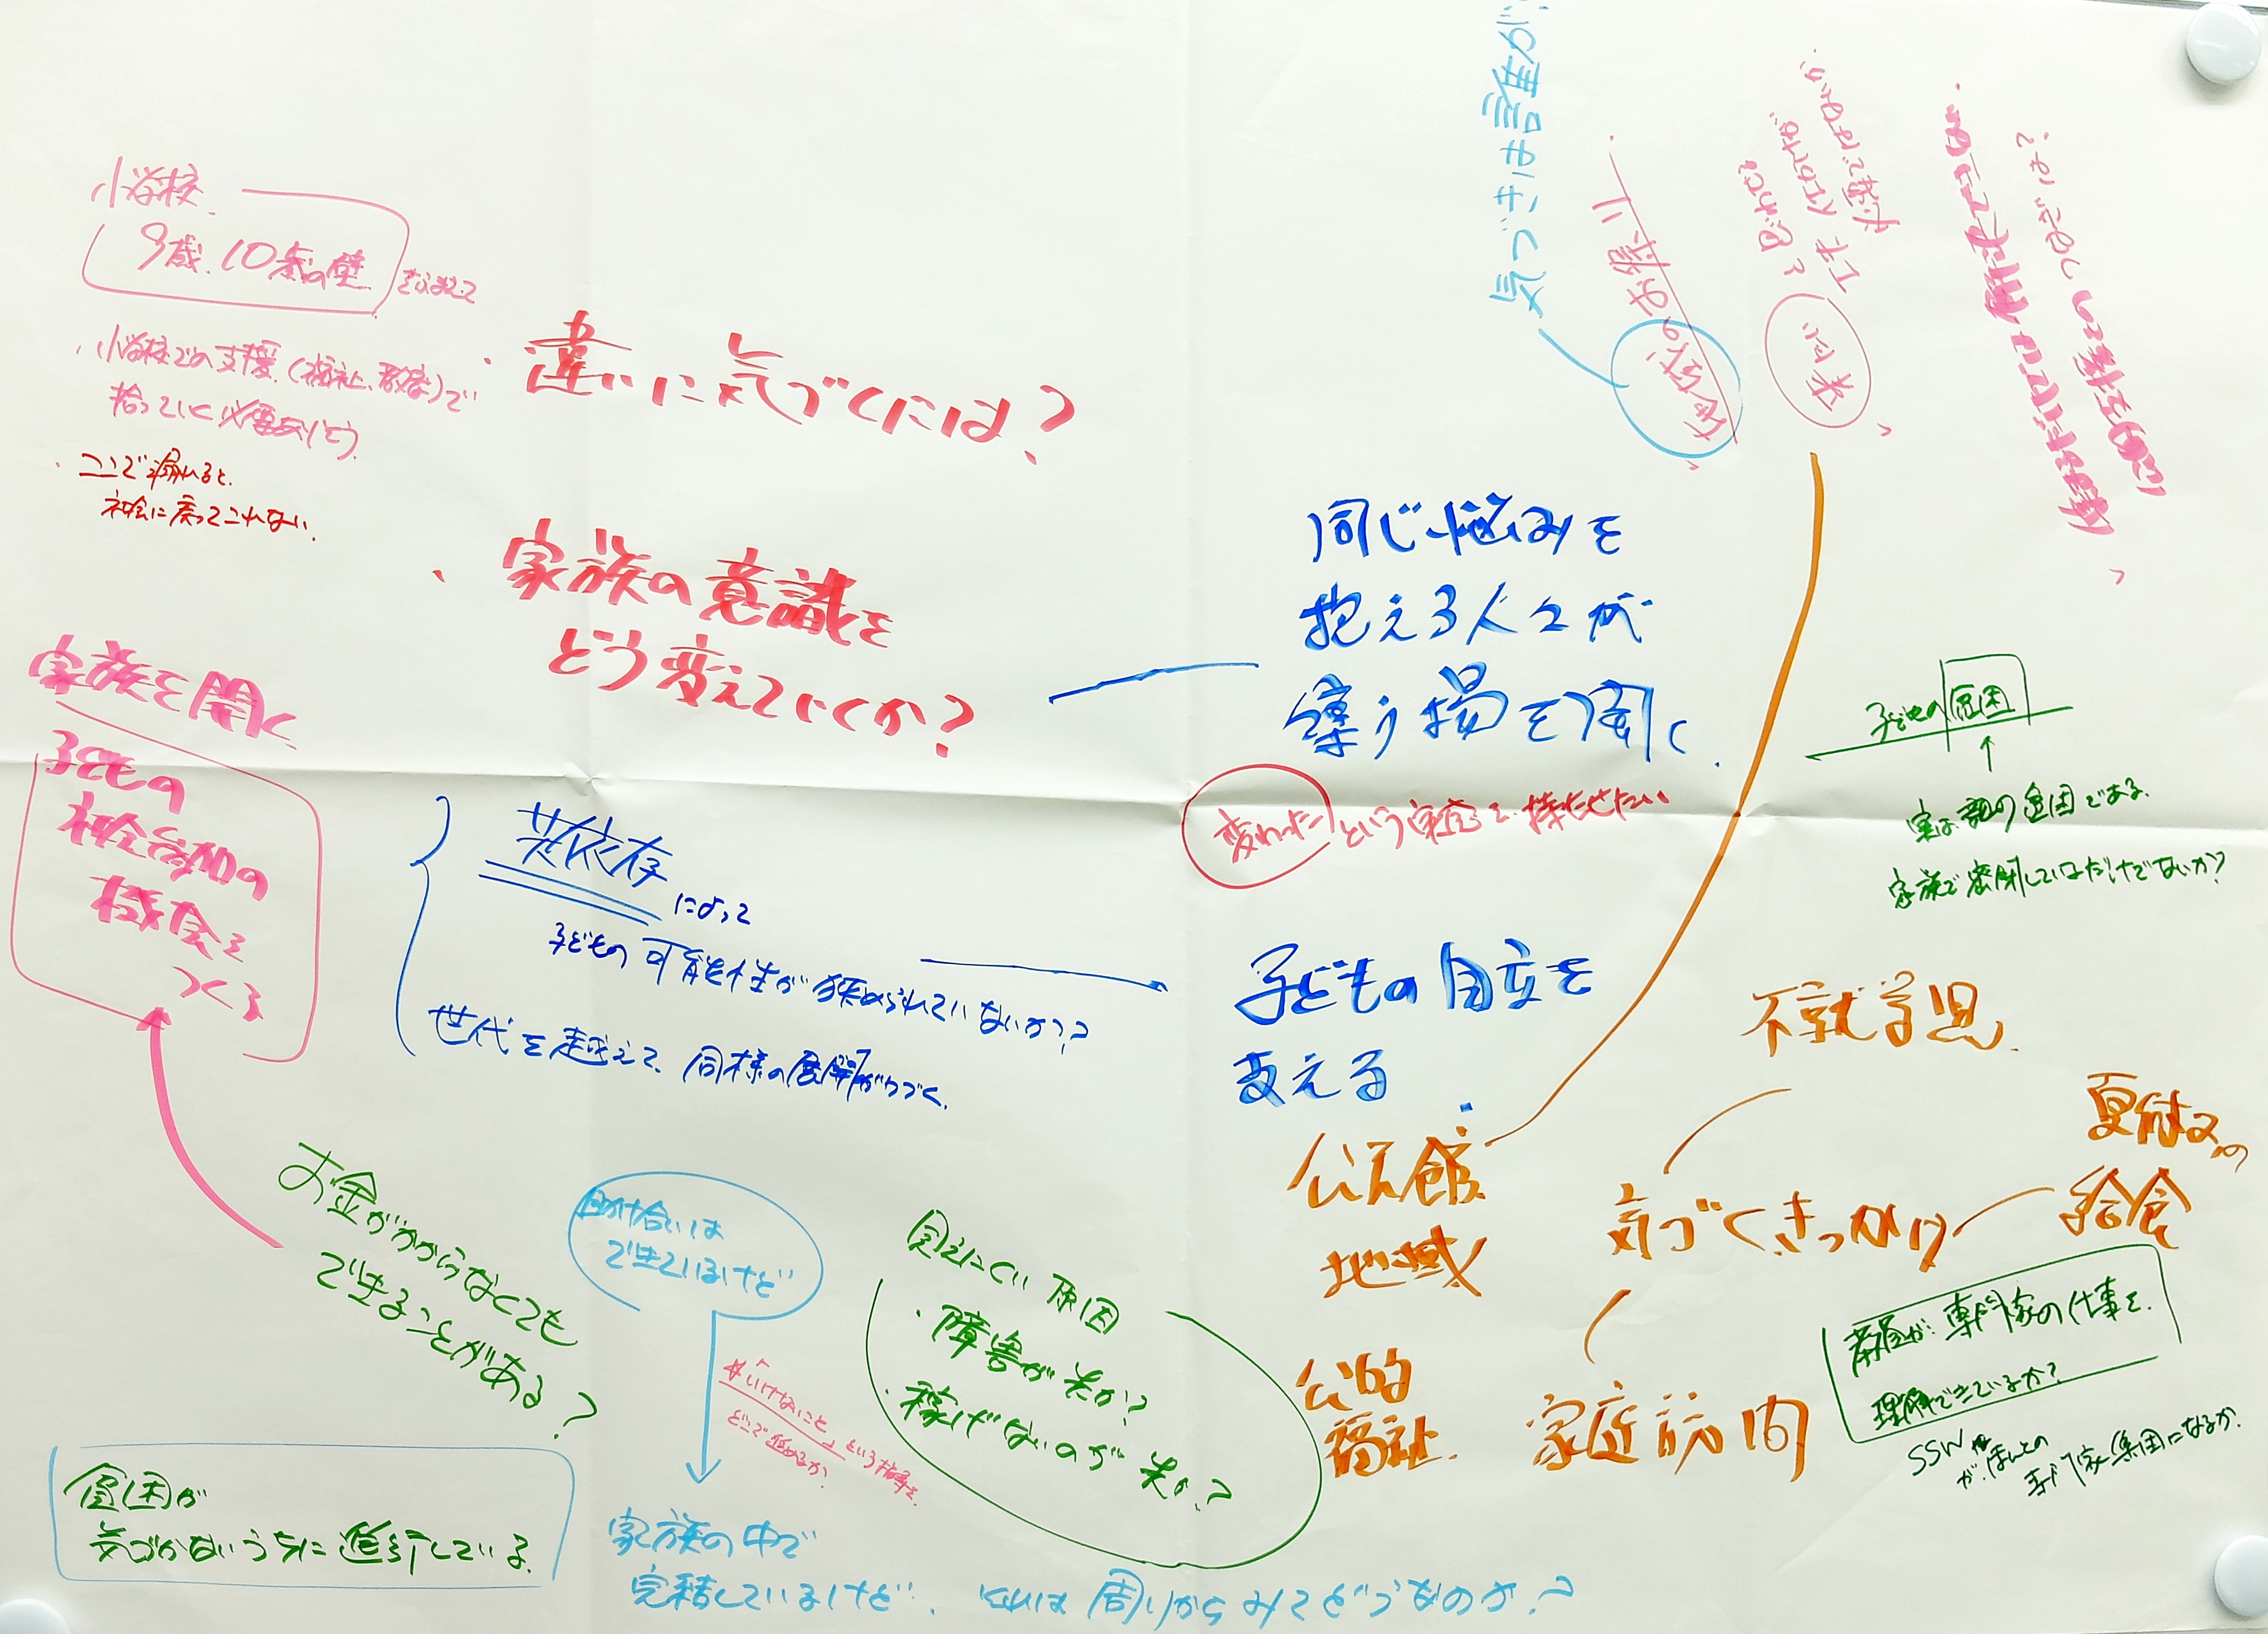 小学校
9歳、10歳の壁 をふまえて
・小学校での支援(福祉、教育)で
拾っていく必要ありそう
・ここで漏れると、
社会に戻ってこれない。
・違いに気づくには?
・家族の意識を
どう変えていくか?
家族を開く
子どもの
社会参加の
機会を
つくる
共依存
によって
子どもの可能性が狭められていないか??
世代を越えて、同様の展開がつづく。
お金がかからなくても
できることがある?
貧困が
気づかないうちに進行している。
助け合いは
できているけど
「いけないこと」という指導を
どこで始めるか。
家族の中で
完結しているけど、それは周りからみてどうなのか?
見えにくい原因
・障害が先か?
・稼げないのが先か?
気づきは誰の
同じ悩みを
抱える人々が
集う場を開く
変わったという実感を持たせたい
子どもの自立を
支える
公民館
地域
公的
福祉
子どもの貧困
実は親の貧困である。
家族で密閉しているだけでないか?
不就学児
気づくきっかけ
夏休みの
給食
家庭訪問
教員が専門家の仕事を
理解できているか?
SSW
がほんとの
専門家集団になるか。